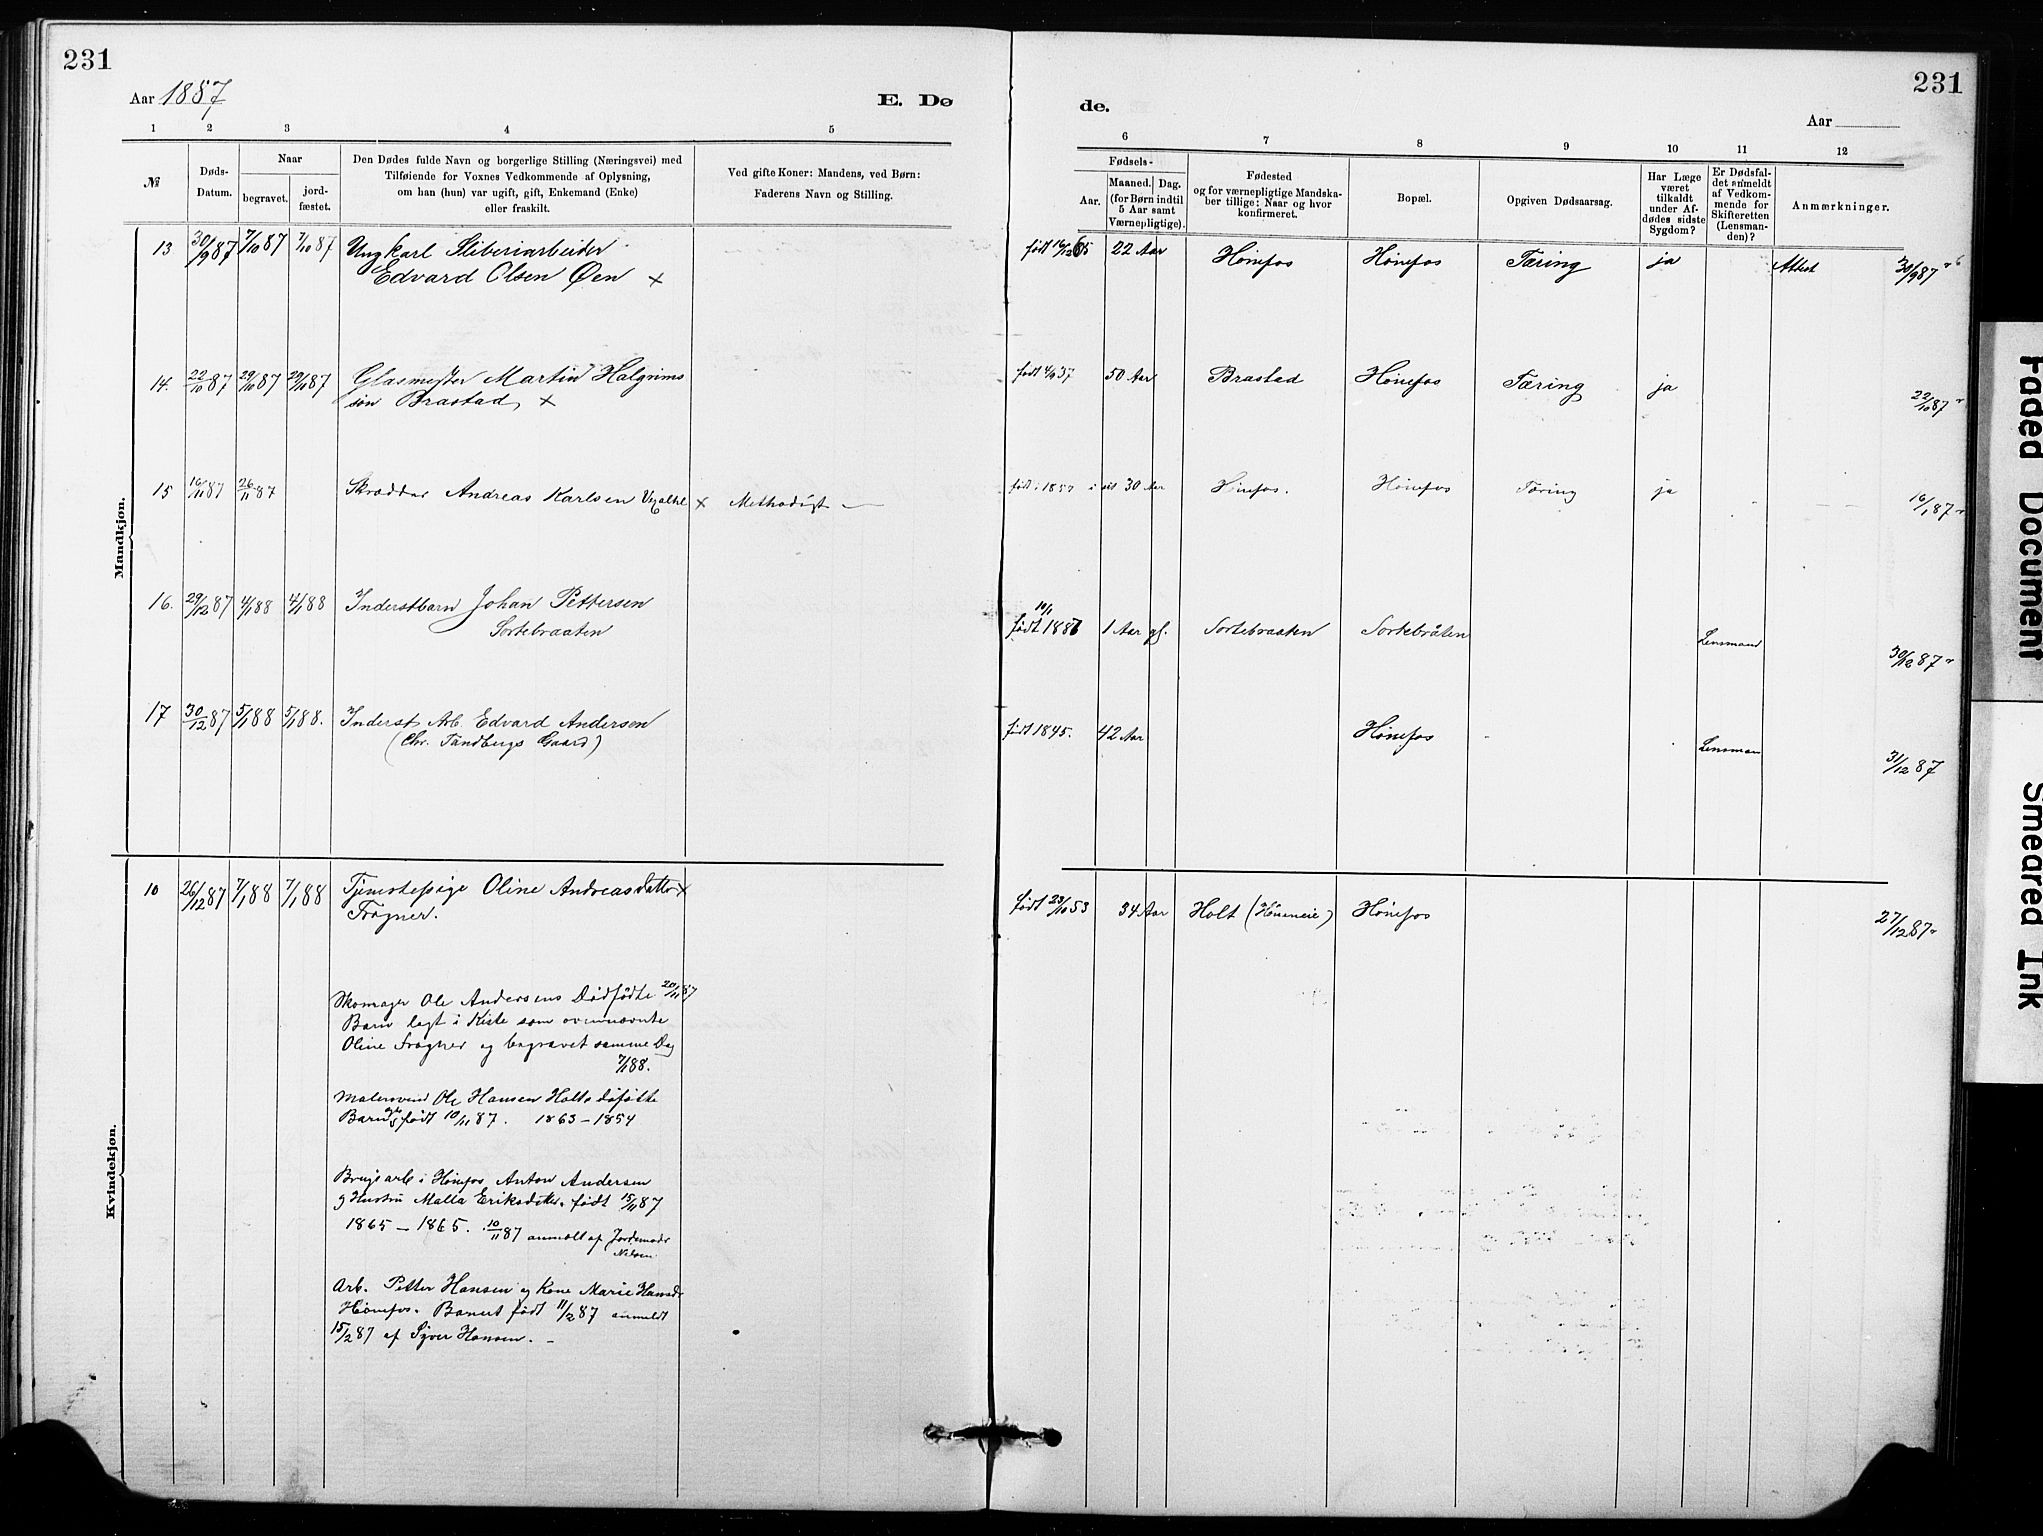 231
231
Aar 1887
E. Dø
de.
Aar
1 2 3 4 5
6 7 8 9 10 11 12
№
Døds-
Datum.
Naar
begravet.
jord-
fæstet.
Den Dødes fulde Navn og borgerlige Stilling (Næringsvei) med
Tilføiende for Voxnes Vedkommende af Oplysning,
om han (hun) var ugift, gift, Enkemand (Enke)
eller fraskilt.
Ved gifte Koner: Mandens, ved Børn:
Faderens Navn og Stilling.
Fødsels-
Aar.
Maaned. Dag.
(for Børn indtil
5 Aar samt
Værnepligtige).
Fødested
og for værnepligtige Mandska-
ber tillige: Naar og hvor
konfirmeret.
Bopæl.
Opgiven Dødsaarsag.
Har Læge
været
tilkaldt
under Af-
dødes sidste
Sygdom?
Er Dødsfal-
det anmeldt
af Vedkom-
mende for
Skifteretten
(Lensman-
den)?
Anmærkninger.
Mandkjøn.
13 30/9 87 7/10 87 7/10 87 Ungkarl Sliberiarbeider
Edvard Olsen Øen ×
født 16/12 65 22 Aar Hønefos Hønefos Tæring ja Attest 30/9 87
14. 22/10 87 29/10 87 29/10 87 Glasmester Martin Halgrims
søn Brastad, ×
født 4/10 37 50 Aar Brastad Hønefos Tæring ja 22/10 87
15 16/11 87 26/11 87 Skrædder Andreas Karlsen × Methodist
født i 1857 30 Aar Hønefos. Hønefos Tæring ja 16/1 87
16. 29/12 87 4/1 88 4/1 88 Inderstbarn Johan Pettersen
Sortebraaten
10/1
født 1886 1 Aar gl. Sortebraaten Sortebråten Lensmand 30/12 87
17 30/12 87 5/1 88 5/1 88. Inderst Arb. Edvard Andersen
(Chr. Tandbergs Gaard)
født 1845. 42 Aar Hønefos Lensman 31/12 87
Kvindekjøn.
10 26/12 87 7/1 88 7/1 88 Tjenestepige Oline Andreasdatter ×
Frogner.
født 23/10 53 34 Aar Holt (Hønneeie) Hønefos 27/12 87
Skomager Ole Andersens Dødfødte 20/11 87
Barn lagt i Kiste som ovennævnte
Oline Frogner og begravet samme Dag
7/1 88.
Malersvend Ole Hansen Holts døføtte
Barn født 10/11 87. 1863 – 1854
Brugsarb i Hønefos Anton Andersen
og Hustru Malla Eriksdtter. født 15/11 87
1865 – 1865. 10/11 87 anmeldt af Jordemodr
Nilsen.
Arb. Petter Hansen og Kone Marie Hansdr
Hønefos. Barnet født 11/2 87 anmeldt
15/2 87 af Syver Hansen. –
Faded Document
Smeared Ink